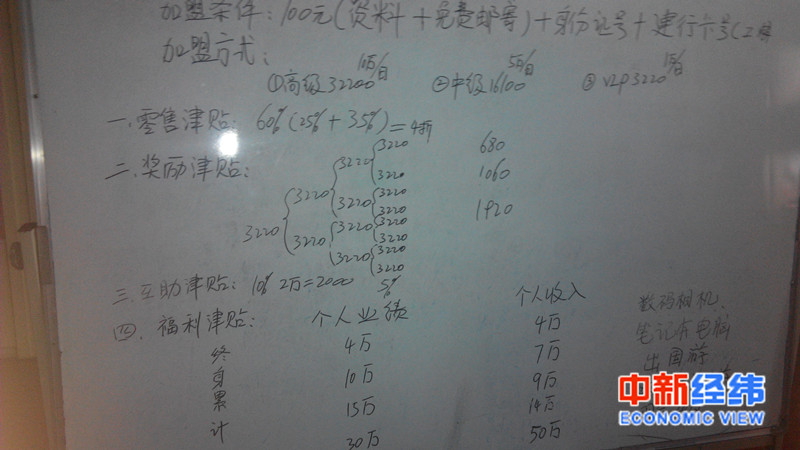 加盟条件：100元(资料+免费邮寄)+身份证号+建行卡号(工商
加盟方式：
10万/日 5万/日 1万/日
①高级32200 ②中级16100 ③VIP3220
一.零售津贴：60%(25%+35%)=4折
二.奖励津贴：
3220 680
3220 3220 1060
3220 3220
3220 3220 1420
3220 3220
3220 3220 3220
3220 3220
3220
三.互助津贴：10% 2万=2000 5%
四.福利津贴：个人业绩 个人收入 数码相机.
终 4万 4万 笔记本电脑
身 10万 7万 出国游
累 15万 9万
计 30万 14万
50万
中新经纬
ECONOMIC VIEW